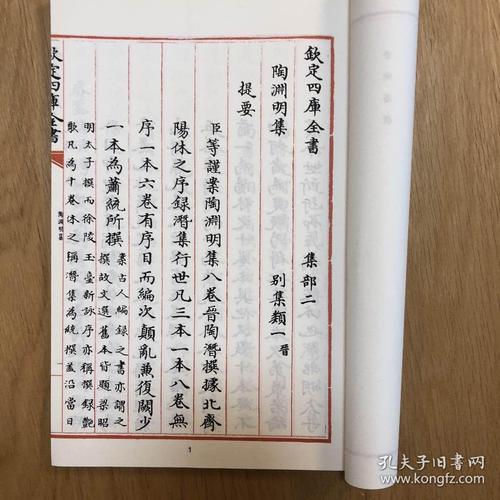 欽定四庫全書 集部二
陶淵明集 別集類一 晉
提要
臣等謹案陶淵明集八卷晉陶潛撰據北齊
陽休之序録潛集行世凡三本一本八卷無
序一本六卷有序目而編次顛亂兼復闕少
一本為蕭統所撰
案古人編録之書亦謂之
撰故文選舊本皆題梁昭
明太子撰而徐陵玉臺新詠序亦稱撰録艷
歌凡為十卷休之稱潛集為統撰蓋沿當日
欽定四庫全書
陶淵明集
1
孔夫子旧书网
www.kongfz.com